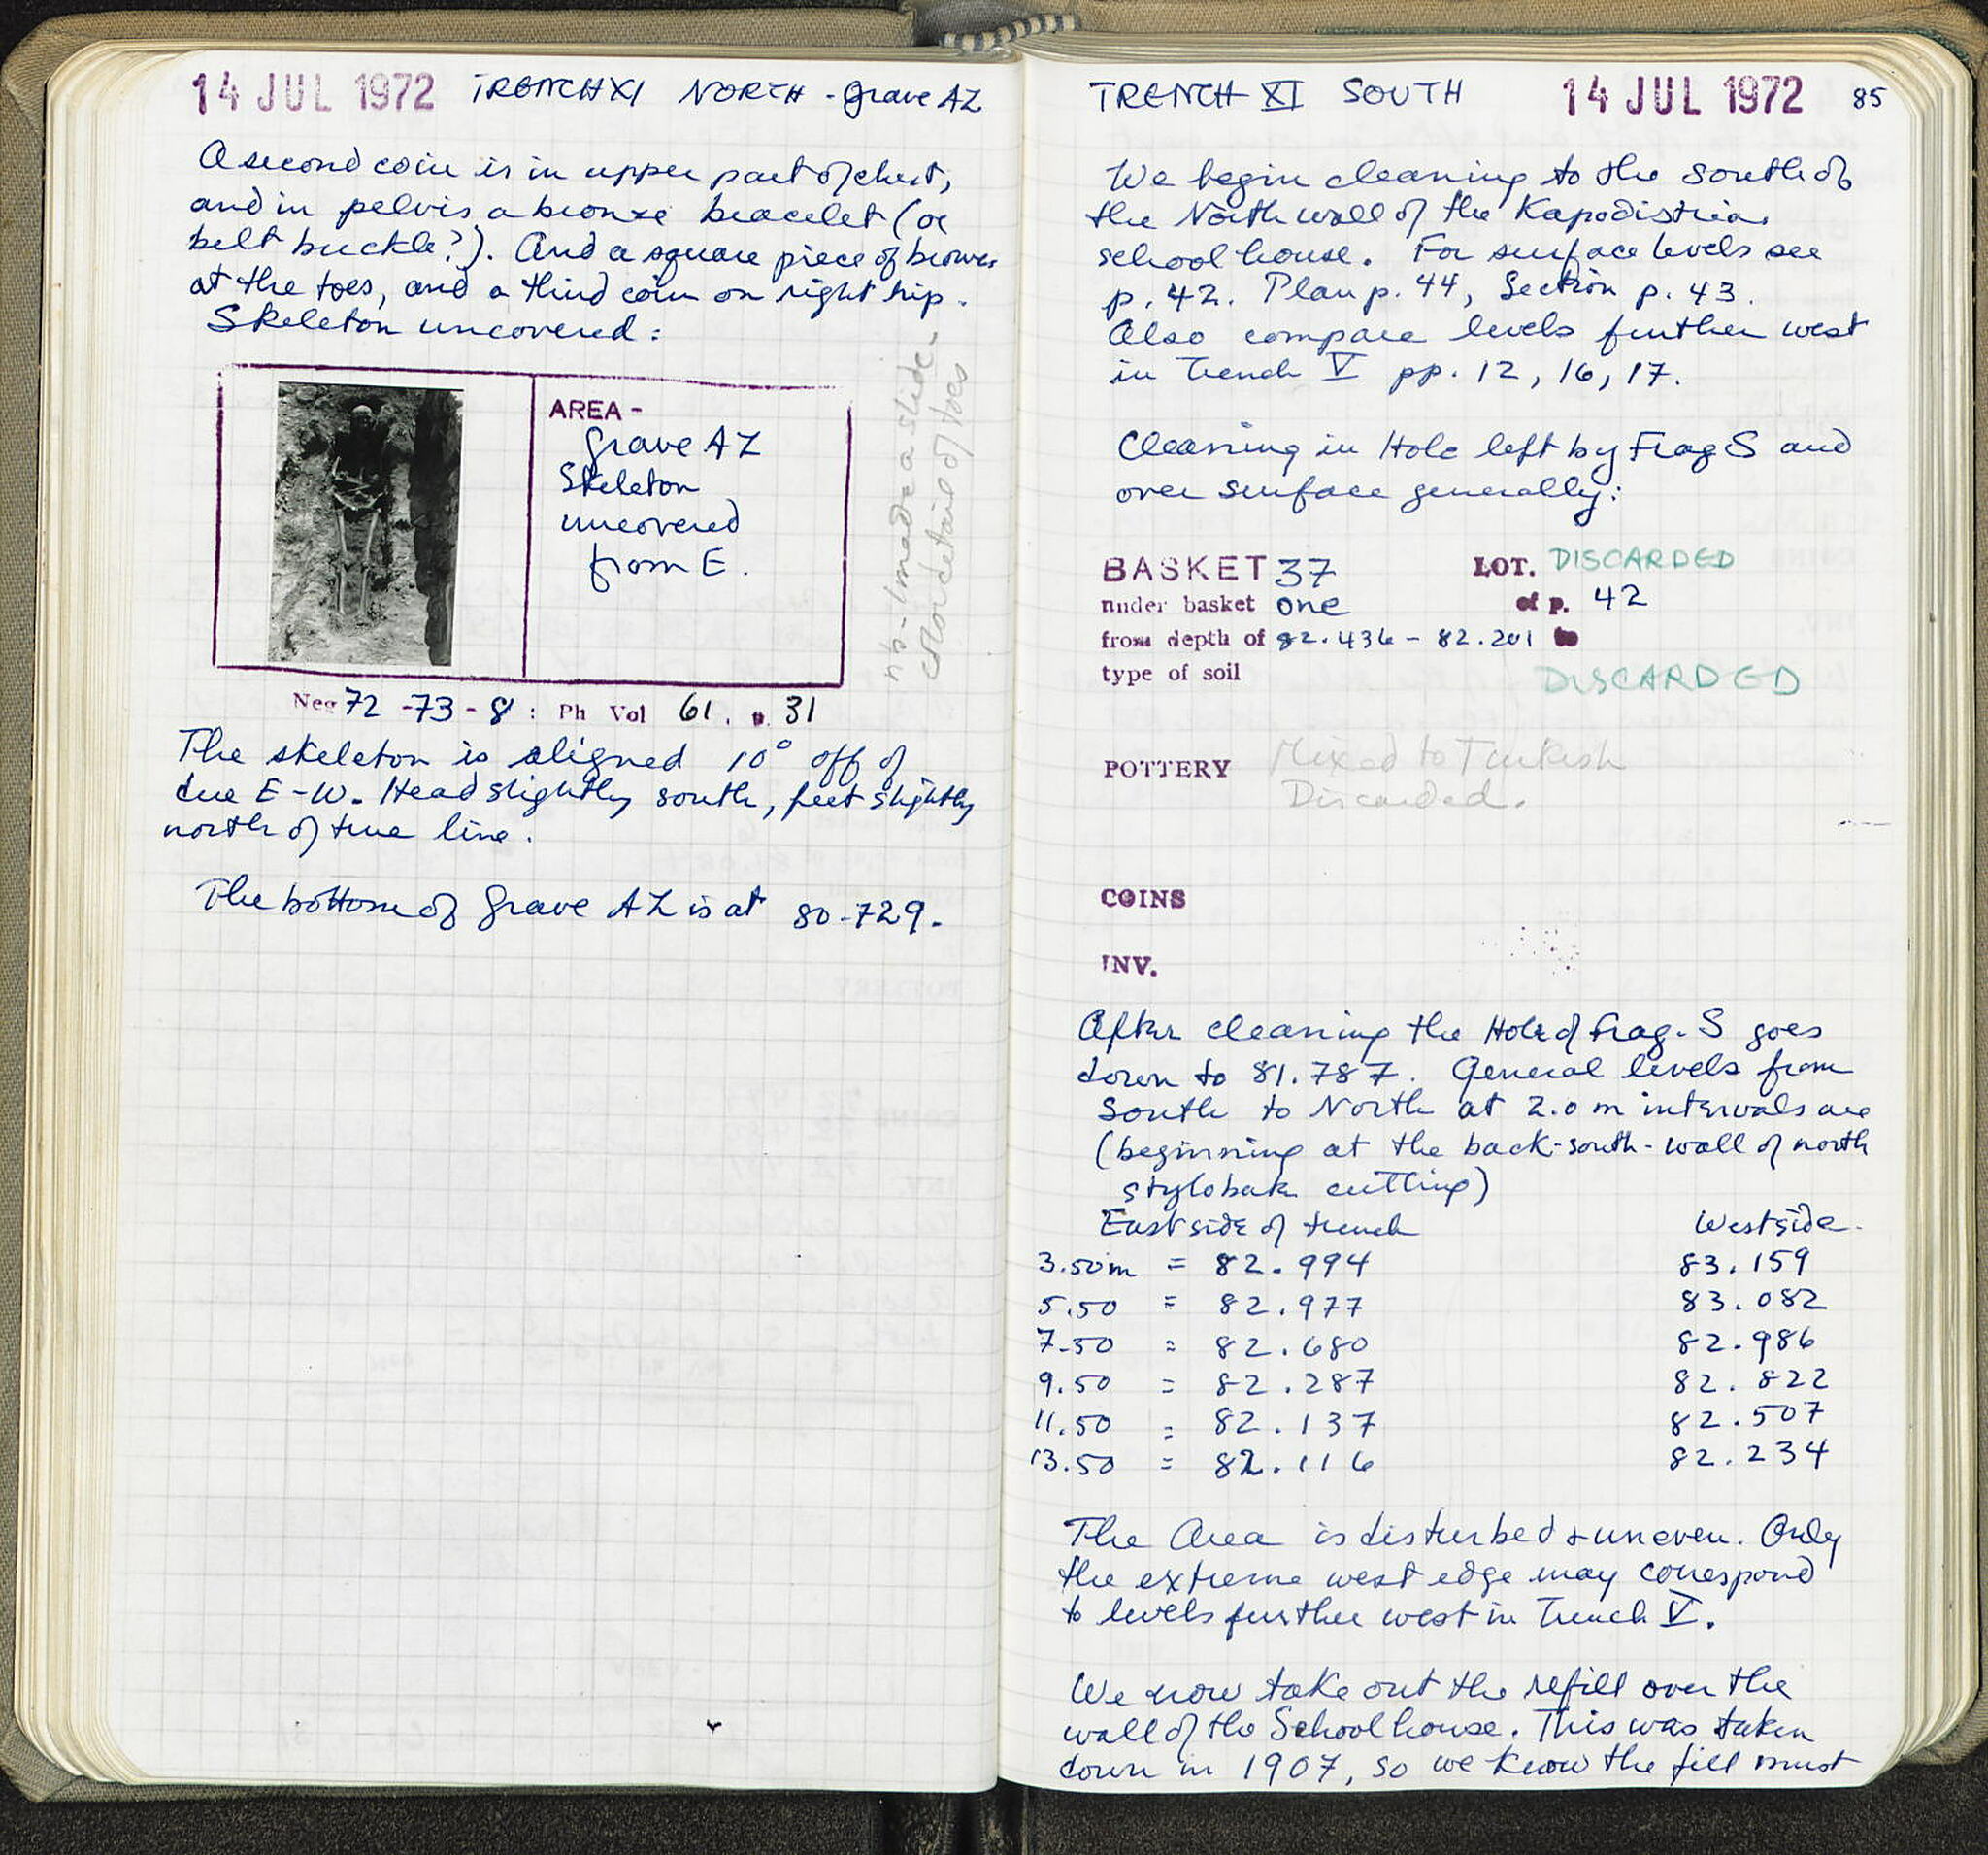 14 JUL 1972 TRENCH XI NORTH - Grave AZ
A second coin is in upper part of chest,
and in pelvis a bronze bracelet (or
belt buckle?). And a square piece of bronze
at the toes, and a third coin on right hip.
Skeleton uncovered:
AREA -
Grave AZ
Skeleton
uncovered
from E.
nb - I made a slide -
color detail of toes
Neg 72 - 73 - 8 : Ph Vol 61, p. 31
The skeleton is aligned 10° off of
due E-W. Head slightly south, feet slightly
north of true line.
The bottom of Grave AZ is at 80.729.
TRENCH XI SOUTH 14 JUL 1972 85
We begin cleaning to the south of
the North wall of the Kapodistrian
school house. For surface levels see
p. 42. Plan p. 44, Section p. 43.
Also compare levels further west
in Trench V pp. 12, 16, 17.
Cleaning in Hole left by Frag S and
over surface generally:
BASKET 37 LOT. DISCARDED
under basket one of p. 42
from depth of 82.436 - 82.201 to
type of soil DISCARDED
POTTERY Mixed to Turkish
Discarded.
COINS
INV.
After cleaning the Hole of Frag. S goes
down to 81.787. General levels from
South to North at 2.0 m intervals are
(beginning at the back-south-wall of north
stylobate cutting)
East side of trench West side
3.50m = 82.994 83.159
5.50 = 82.977 83.082
7.50 = 82.680 82.986
9.50 = 82.287 82.822
11.50 = 82.137 82.507
13.50 = 82.116 82.234
The Area is disturbed + uneven. Only
the extreme west edge may correspond
to levels further west in Trench V.
We now take out the refill over the
wall of the School house. This was taken
down in 1907, so we know the fill must